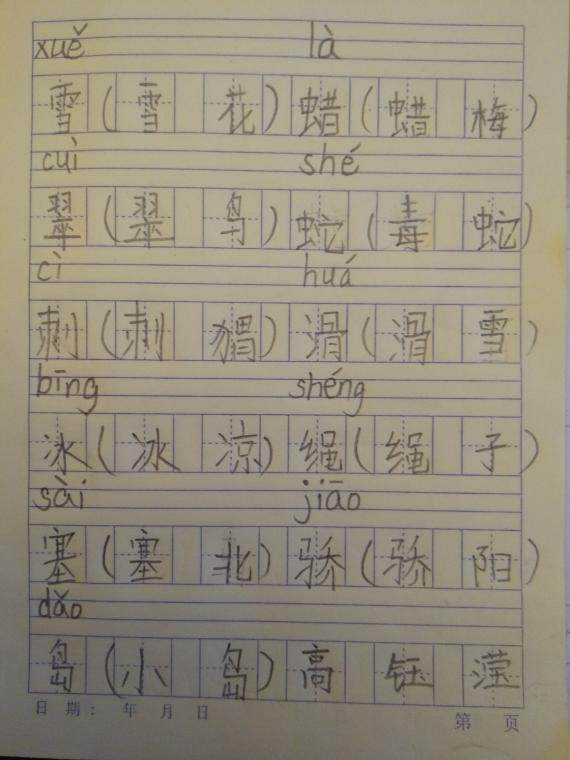 xuě là
雪(雪花)蜡(蜡梅)
cuì shé
翠(翠鸟)蛇(毒蛇)
cì huá
刺(刺猬)滑(滑雪)
bīng shéng
冰(冰凉)绳(绳子)
sài jiāo
塞(塞北)骄(骄阳)
dǎo
岛(小岛)高钰滢
日期: 年 月 日 第 页